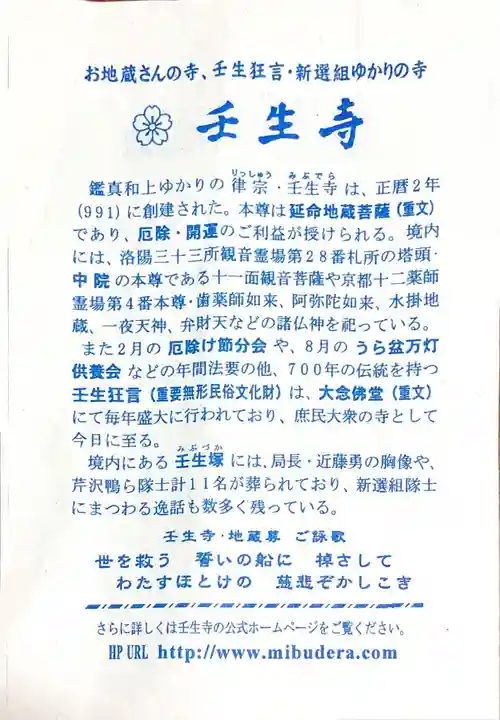 お地蔵さんの寺、壬生狂言・新選組ゆかりの寺
壬生寺
鑑真和上ゆかりの律宗・壬生寺は、正暦2年
りっしゅう みぶでら
(991)に創建された。本尊は延命地蔵菩薩(重文)
であり、厄除・開運のご利益が授けられる。境内
には、洛陽三十三所観音霊場第28番札所の塔頭・
中院の本尊である十一面観音菩薩や京都十二薬師
霊場第4番本尊・歯薬師如来、阿弥陀如来、水掛地
蔵、一夜天神、弁財天などの諸仏神を祀っている。
また2月の厄除け節分会や、8月のうら盆万灯
供養会などの年間法要の他、700年の伝統を持つ
壬生狂言(重要無形民俗文化財)は、大念佛堂(重文)
にて毎年盛大に行われており、庶民大衆の寺として
今日に至る。
みぶづか
境内にある壬生塚には、局長・近藤勇の胸像や、
芹沢鴨ら隊士計11名が葬られており、新選組隊士
にまつわる逸話も数多く残っている。
壬生寺・地蔵尊 ご詠歌
世を救う 誓いの船に 掉さして
わたすほとけの 慈悲ぞかしこき
さらに詳しくは壬生寺の公式ホームページをご覧ください。
HP URL http://www.mibudera.com